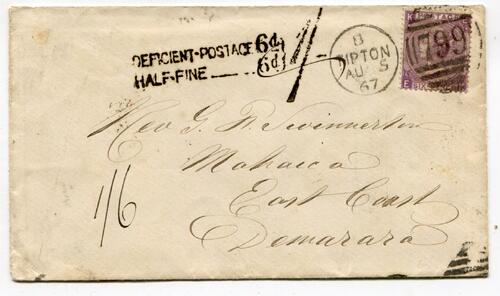 DEFICIENT-POSTAGE 6d
HALF-FINE 6d
1/
B
TIPTON
AU 5
67
K
POSTAGE
799
E
SIX
Rev G. P. Swinnerton
Mahaica
East Coast
Demarara
1/6